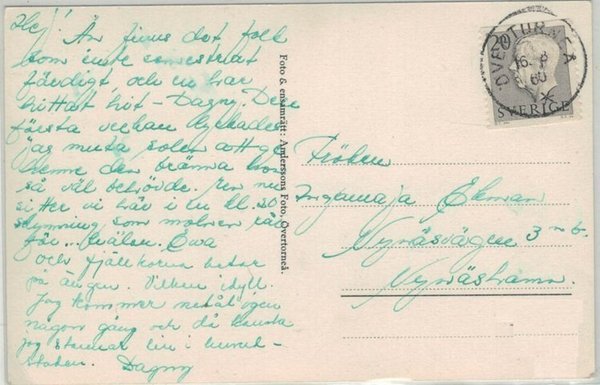 Hej! Än finns det folk
som inte semestrat
färdigt och en har
hittat hit - Dagny. Dess
första veckan lyckades
jag muta solen att ge
henne den bränna hon
så väl behövde. En nu
sitter vi här i en kl. 20
skymning som molnen rår
för.. Kvälen. Ewa
och fjällkorna betar
på ängen. Vilken idyll.
Jag kommer
någon gång och då kanske
jag stannar lin i huvud-
staden. Dagny
Foto & ensamrätt: Anderssons Foto, Övertorneå.
ÖVERTORNEÅ
16. 8
60
SVERIGE
Fröken
Ingamaja Ekman
Nynäsvägen 3 n. b.
Nynäshamn.